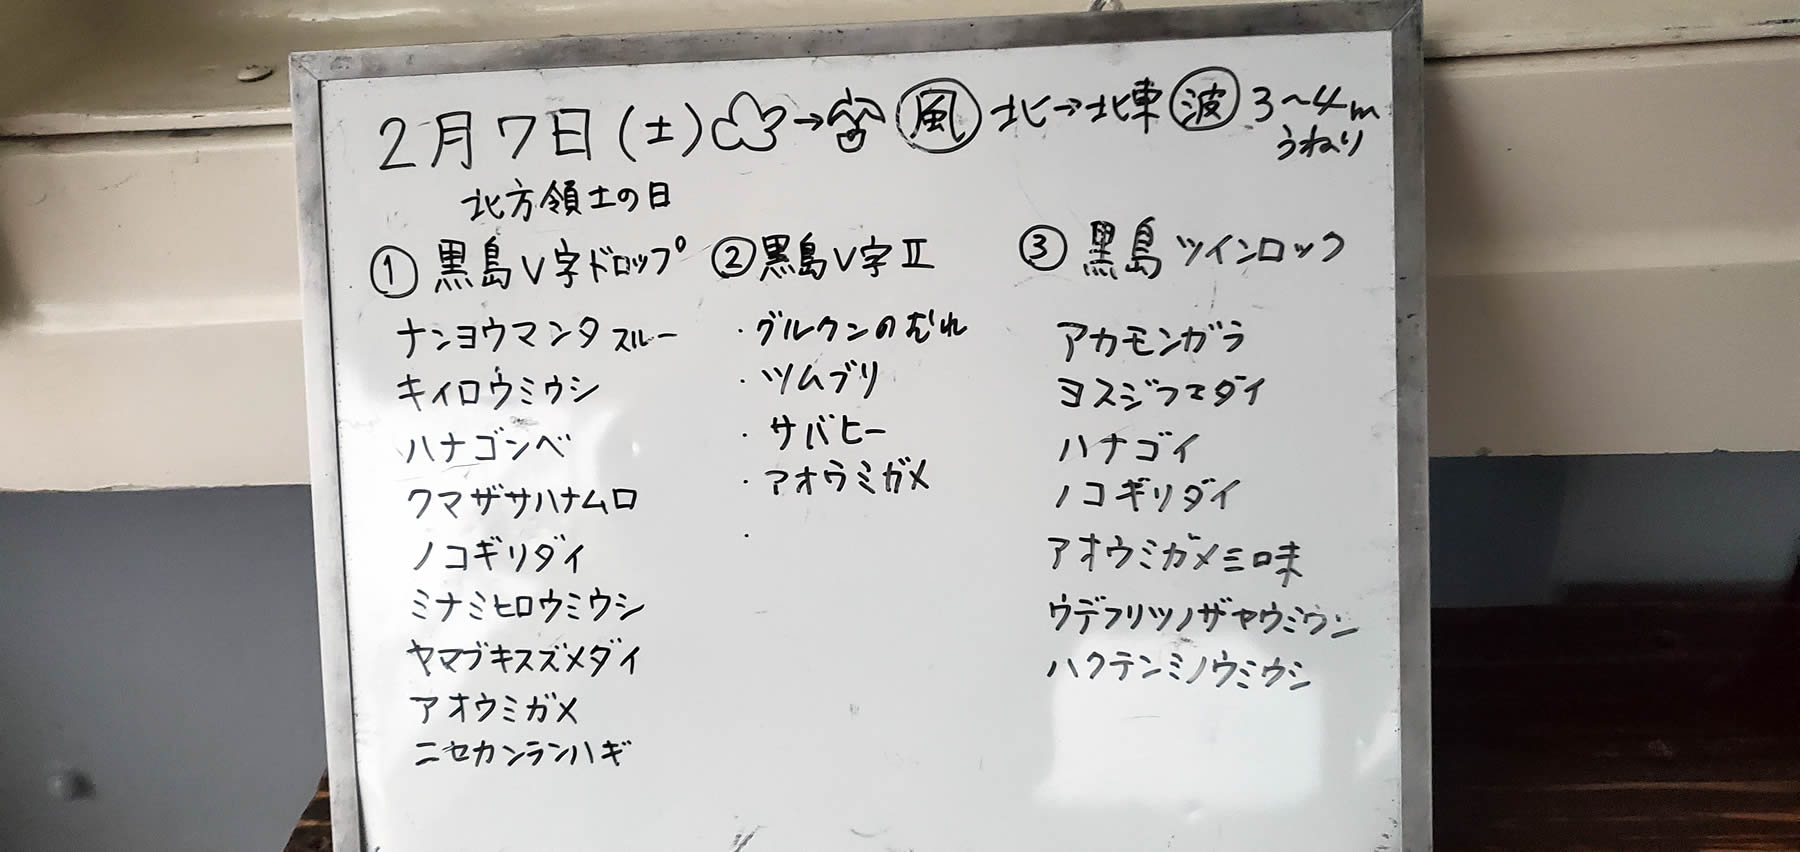 2月7日(土) → 風 北→北東 波 3~4m
うねり
北方領土の日
① 黒島V字ドロップ
ナンヨウマンタ スルー
キイロウミウシ
ハナゴンベ
クマザサハナムロ
ノコギリダイ
ミナミヒロウミウシ
ヤマブキスズメダイ
アオウミガメ
ニセカンランハギ
② 黒島V字Ⅱ
・グルクンのむれ
・ツムブリ
・サバヒー
・アオウミガメ
・
③ 黒島 ツインロック
アカモンガラ
ヨスジフエダイ
ハナゴイ
ノコギリダイ
アオウミガメ三口味
ウデフリツノザヤウミウシ
ハクテンミノウミウシ